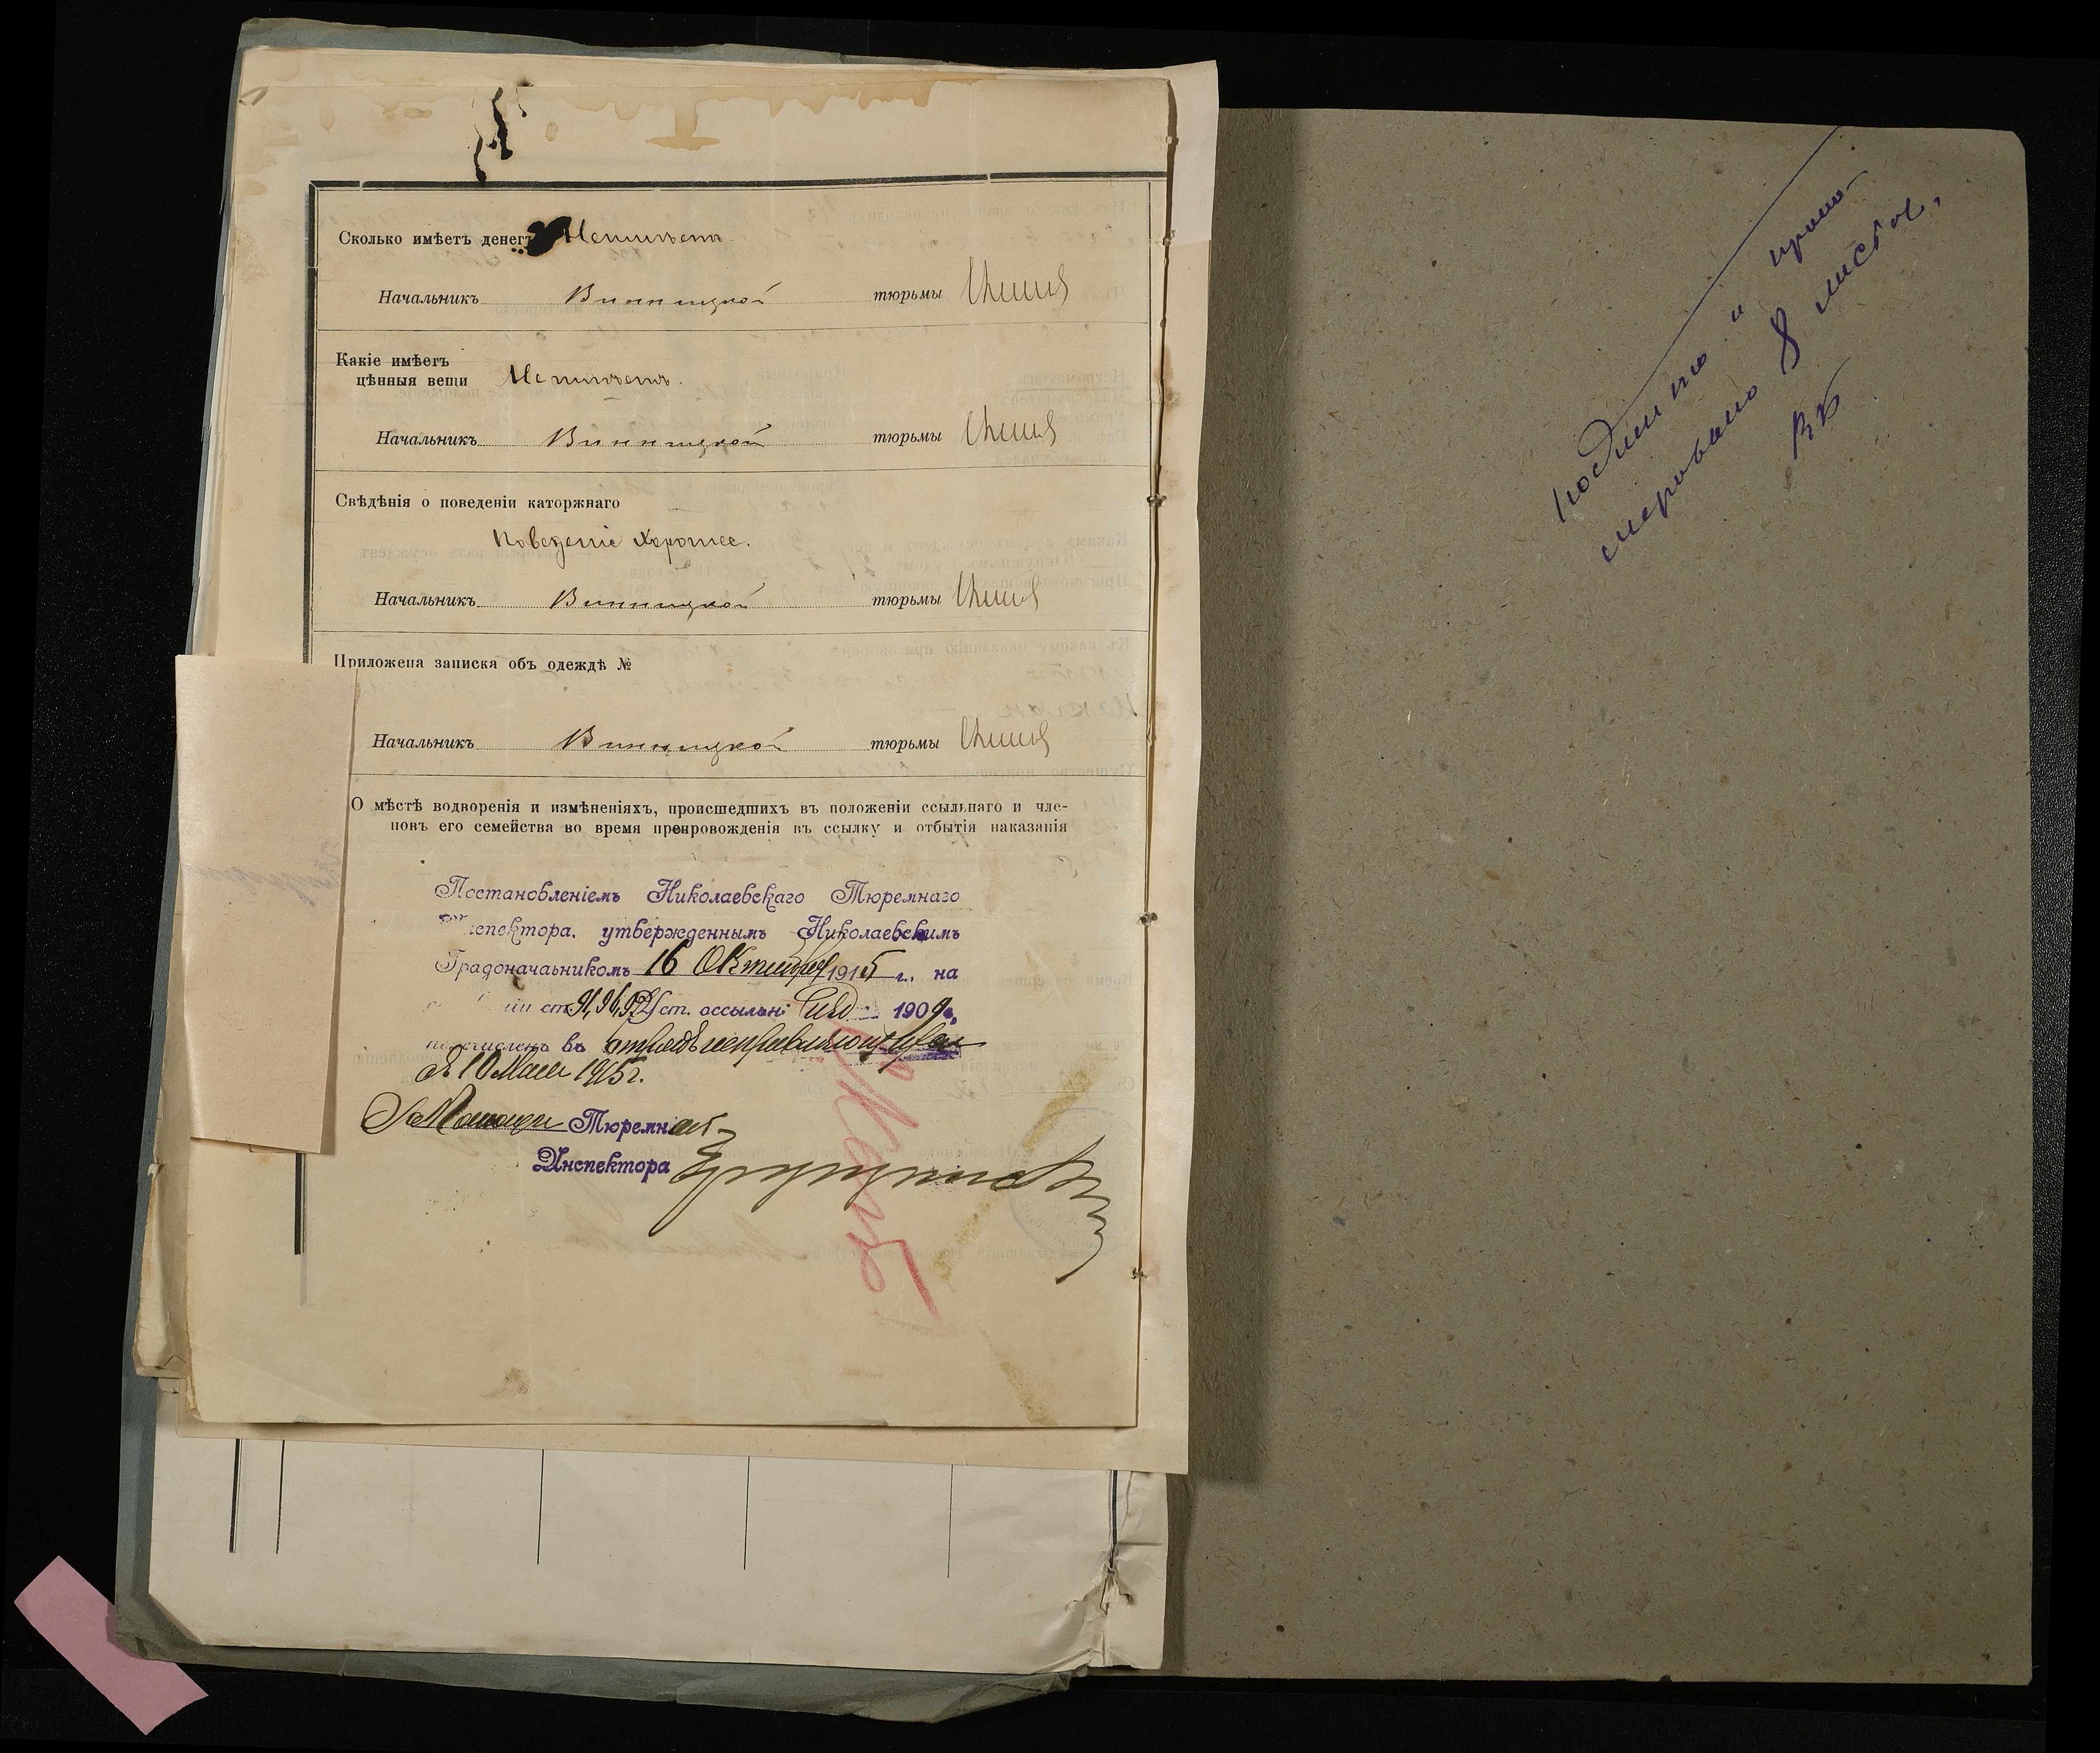 Сколько имѣетъ денегъ Неимѣетъ.
Начальникъ Винницкой тюрьмы
Какіе имѣетъ
цѣнныя вещи Неимѣетъ.
Начальникъ Винницкой тюрьмы
Свѣдѣнія о поведеніи каторжнаго
Поведеніе хорошее.
Начальникъ Винницкой тюрьмы
Приложена записка объ одеждѣ №
Начальникъ Винницкой тюрьмы
О мѣстѣ водворенія и измѣненіяхъ, происшедшихъ въ положеніи ссыльнаго и чле-
новъ его семейства во время препровожденія въ ссылку и отбытія наказанія
Постановленіемъ Николаевскаго Тюремнаго
Инспектора, утвержденнымъ Николаевскимъ
Градоначальникомъ 16 Октября 1915 г., на
ст. 91, 96, Уст. о ссыльн. изд. 1909 г.
перечисленъ въ отрядъ исправляющихся
съ 10 Мая 1915 г.
За Помощн Тюремнаго
Инспектора
Подшито и прону-
меровано 8 листов.